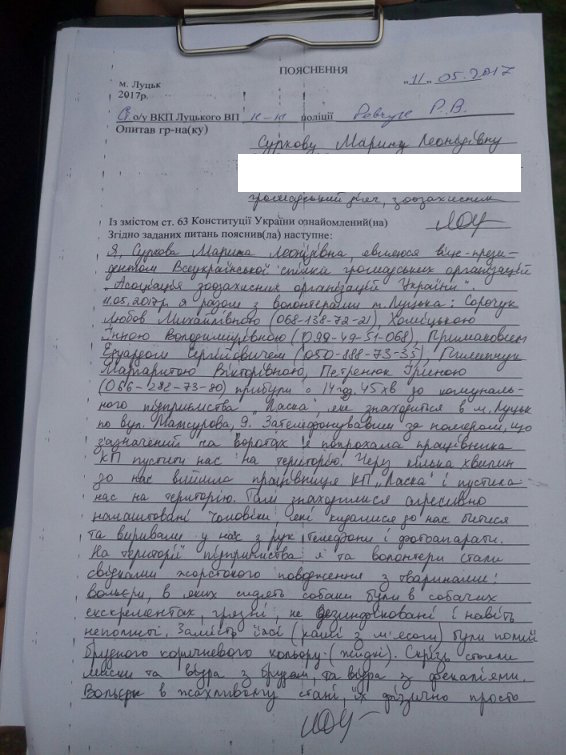 ПОЯСНЕННЯ
„11" .05.2017
м. Луцьк
2017р.
о/у ВКП Луцького ВП поліції Р.В.
Опитав гр-на(ку)
Суркову Марину Леонідівну
громадський діяч, зоозахисник
Із змістом ст. 63 Конституції України ознайомлений(на)
Згідно заданих питань пояснив(ла) наступне:
Я, Суркова Марина Леонідівна, являюся віце-прези-
дентом Всеукраїнської спілка громадських організацій
„Асоціація зоозахисних організацій України".
11.05.2017р. я разом з волонтерами м. Луцька: Сорочук
Любов Михайлівною (068-138-72-21), Хомицькою
Інною Володимирівною (099-49-51-068), Примаковим
Едуардом Сергійовичем (050-888-73-35), Пилипчук
Маргаритою Вікторівною, Петренюк Іриною
(066-282-73-80) прибули о 14год. 45хв до комуналь-
ного підприємства „Ласка", яке знаходиться в м. Луцьк
по вул. Мамсурова, 9. Зателефонувавши за номером, що
зазначений на воротах я попрохала працівника
КП пустити нас на територію. Через кілька хвилин
до нас вийшла працівниця КП „Ласка" і пустила
нас на територію. Там знаходилися агресивно
налаштовані чоловіки, які кидалися до нас битися
та виривали у нас з рук телефони і фотоапарати.
На території підприємства я та волонтери стали
свідками жорстокого поводження з тваринами:
вольєри, в яких сидять собаки були в собачих
екскрементах, грязні, не дезинфіковані і навіть
неполиті. Замість їжі (каші з м'ясом) були помиї
брудного коричневого кольору (жидкі). Скрізь стояли
миски та відра з брудом, та відра з фекаліями.
Вольєри в жахливому стані, їх фізично просто